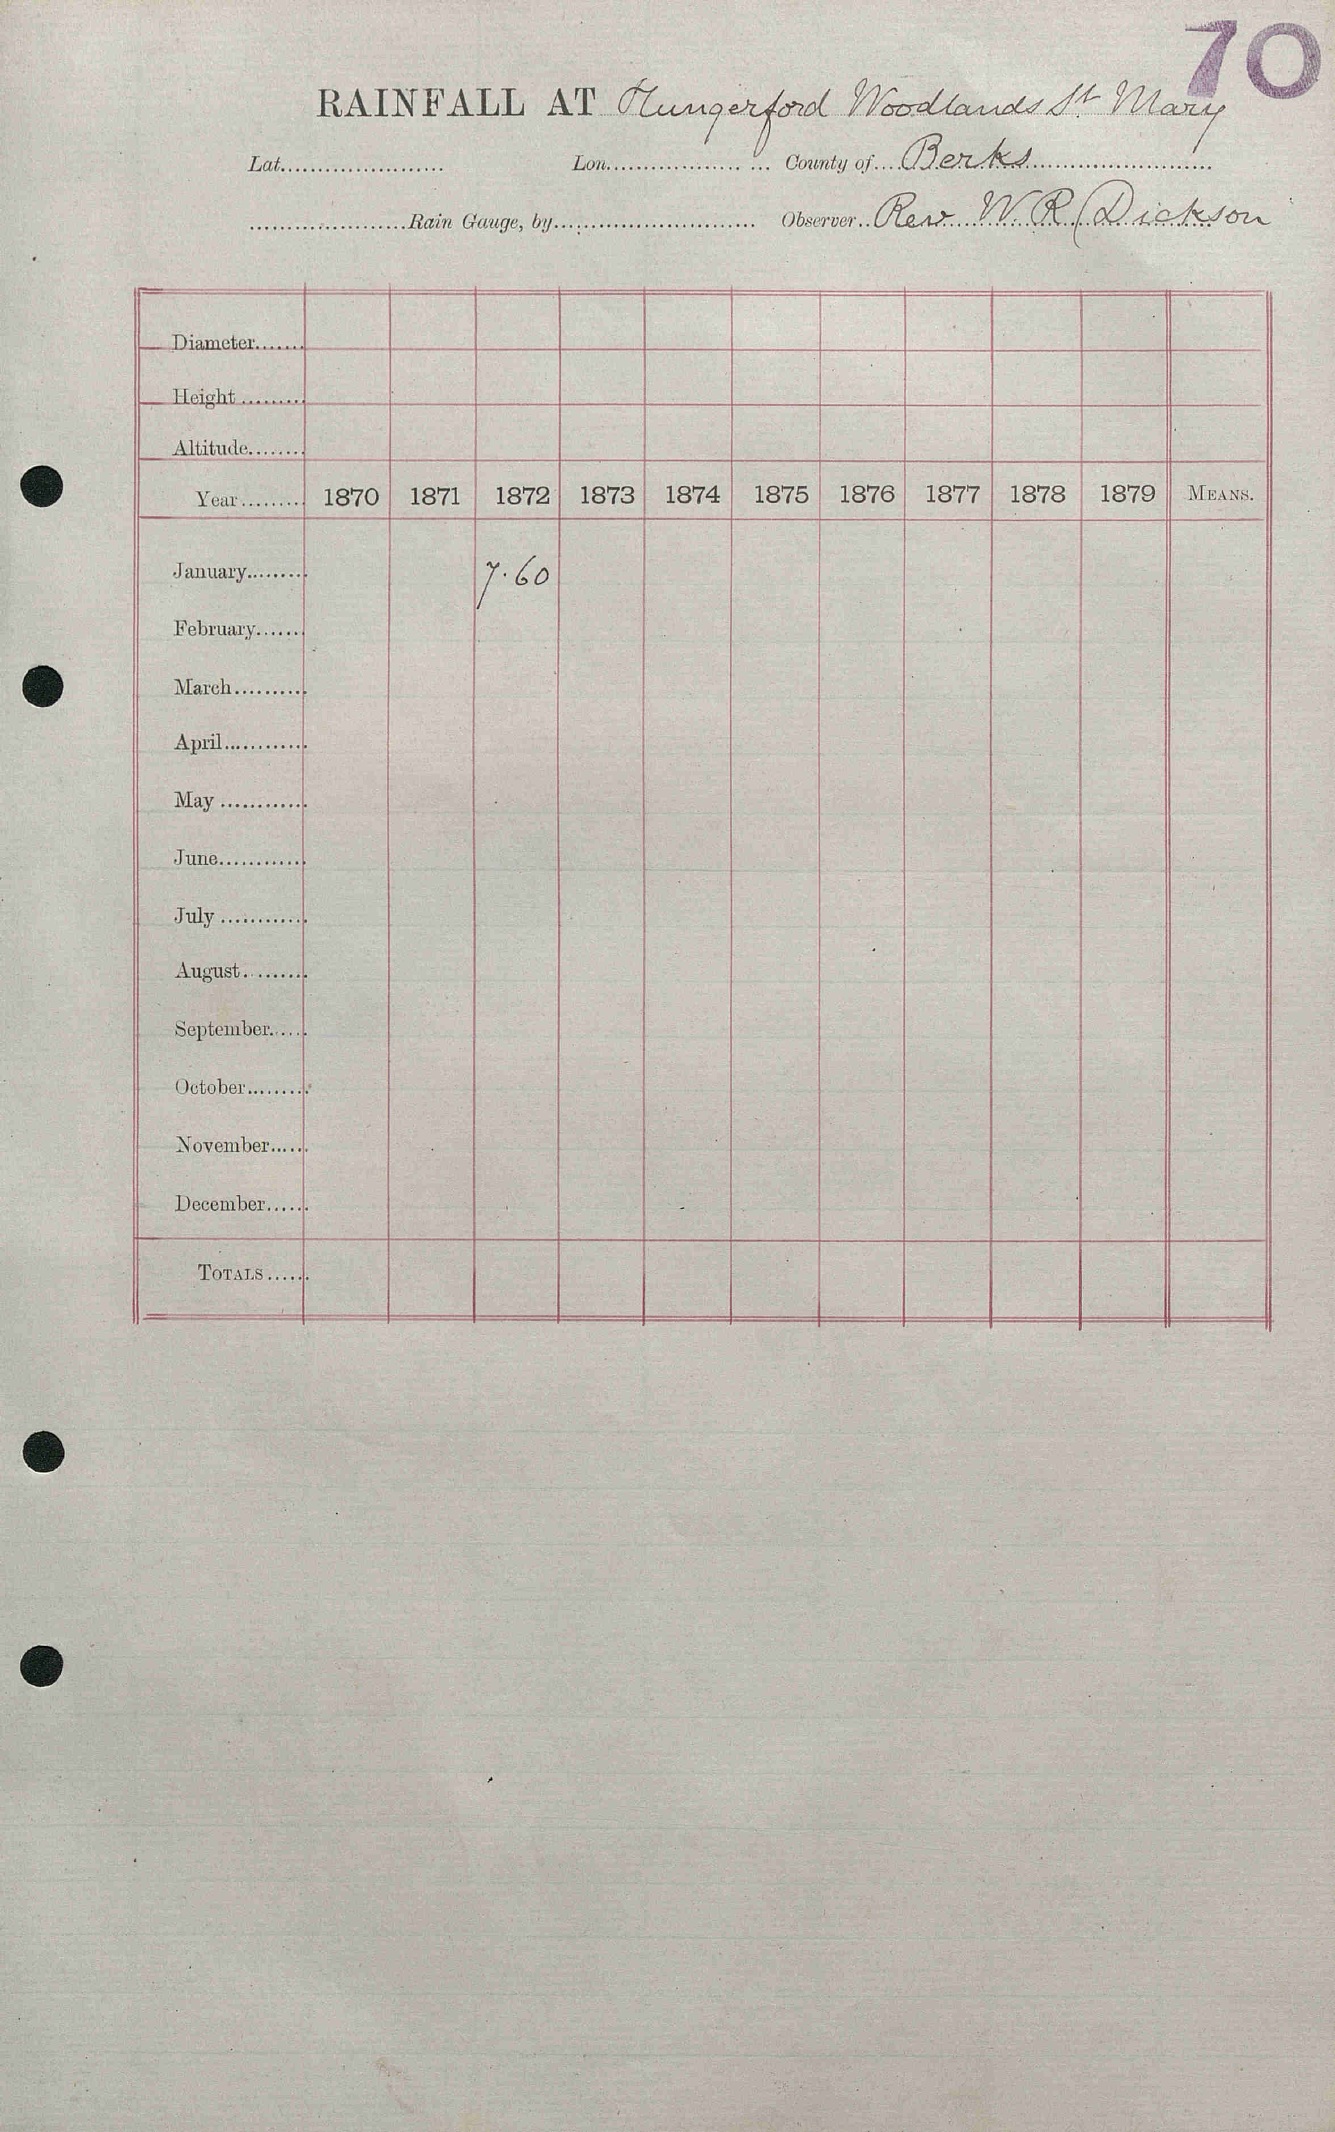 70
RAINFALL AT Hungerford Woodlands St. Mary
Lat...................... Lon.................. ... County of....Berks........................
.....................Rain Gauge, by........................... Observer..Rev. W. R. Dickson
Diameter.......
Height.........
Altitude........
Year......... 1870 1871 1872 1873 1874 1875 1876 1877 1878 1879 MEANS.
January......... 7.60
February.......
March..........
April............
May ............
June............
July ............
August.........
September......
October.........
November......
December......
TOTALS......